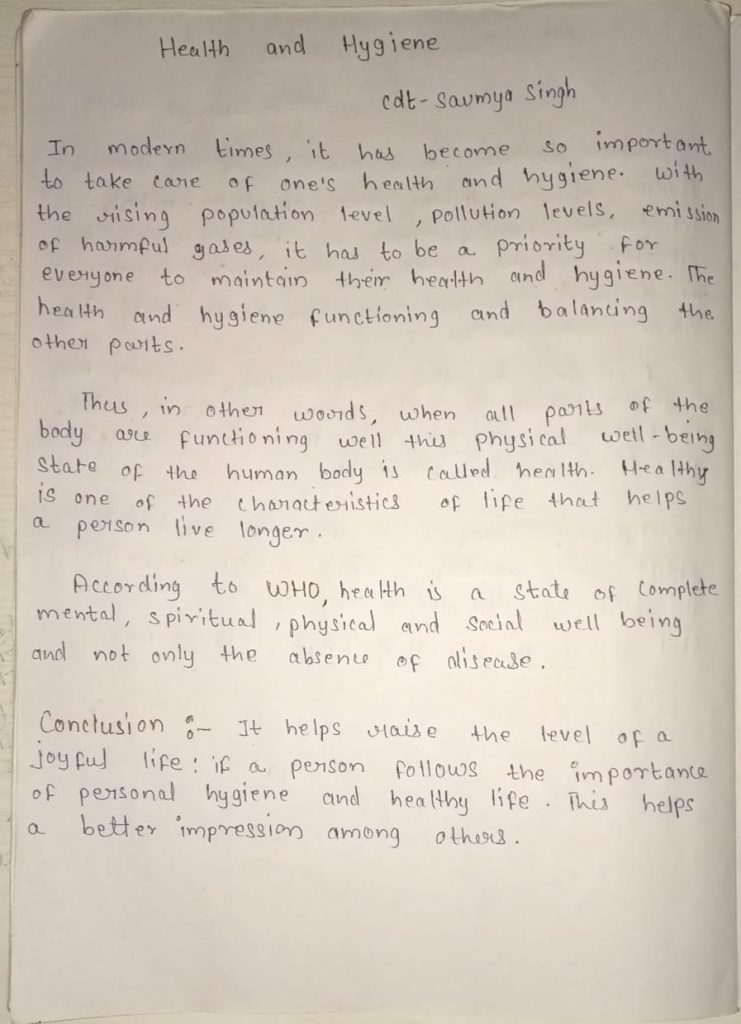 Health and Hygiene
cdt- Saumya Singh
In modern times, it has become so important
to take care of one's health and hygiene. With
the rising population level, pollution levels, emission
of harmful gases, it has to be a priority for
everyone to maintain their health and hygiene. The
health and hygiene functioning and balancing the
other parts.
Thus, in other words, when all parts of the
body are functioning well this physical well-being
State of the human body is called health. Healthy
is one of the characteristics of life that helps
a person live longer.
According to WHO, health is a state of Complete
mental, spiritual, physical and Social well being
and not only the absence of disease.
Conclusion :- It helps raise the level of a
joyful life: if a person follows the importance
of personal hygiene and healthy life. This helps
a better impression among others.